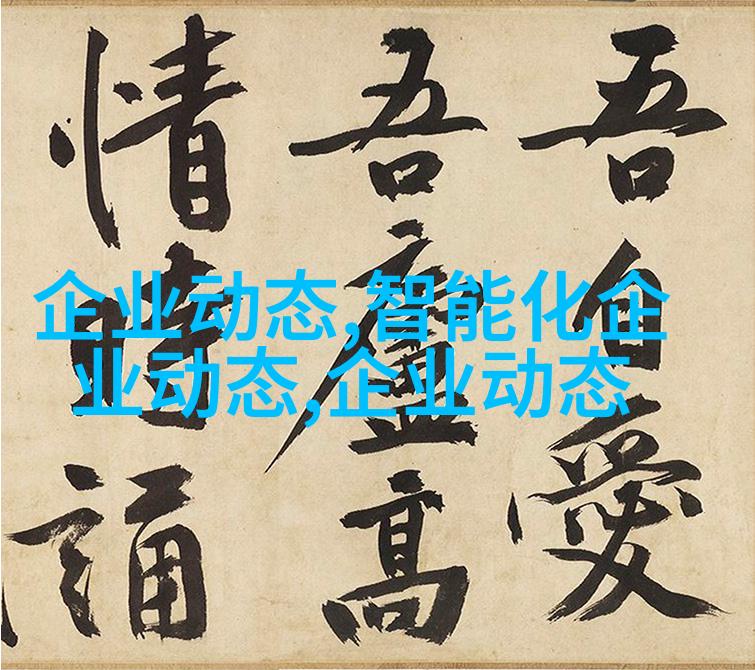 吾自愛
吾廬高
情時誦
企业动态,智能化企
业动态,企业动态